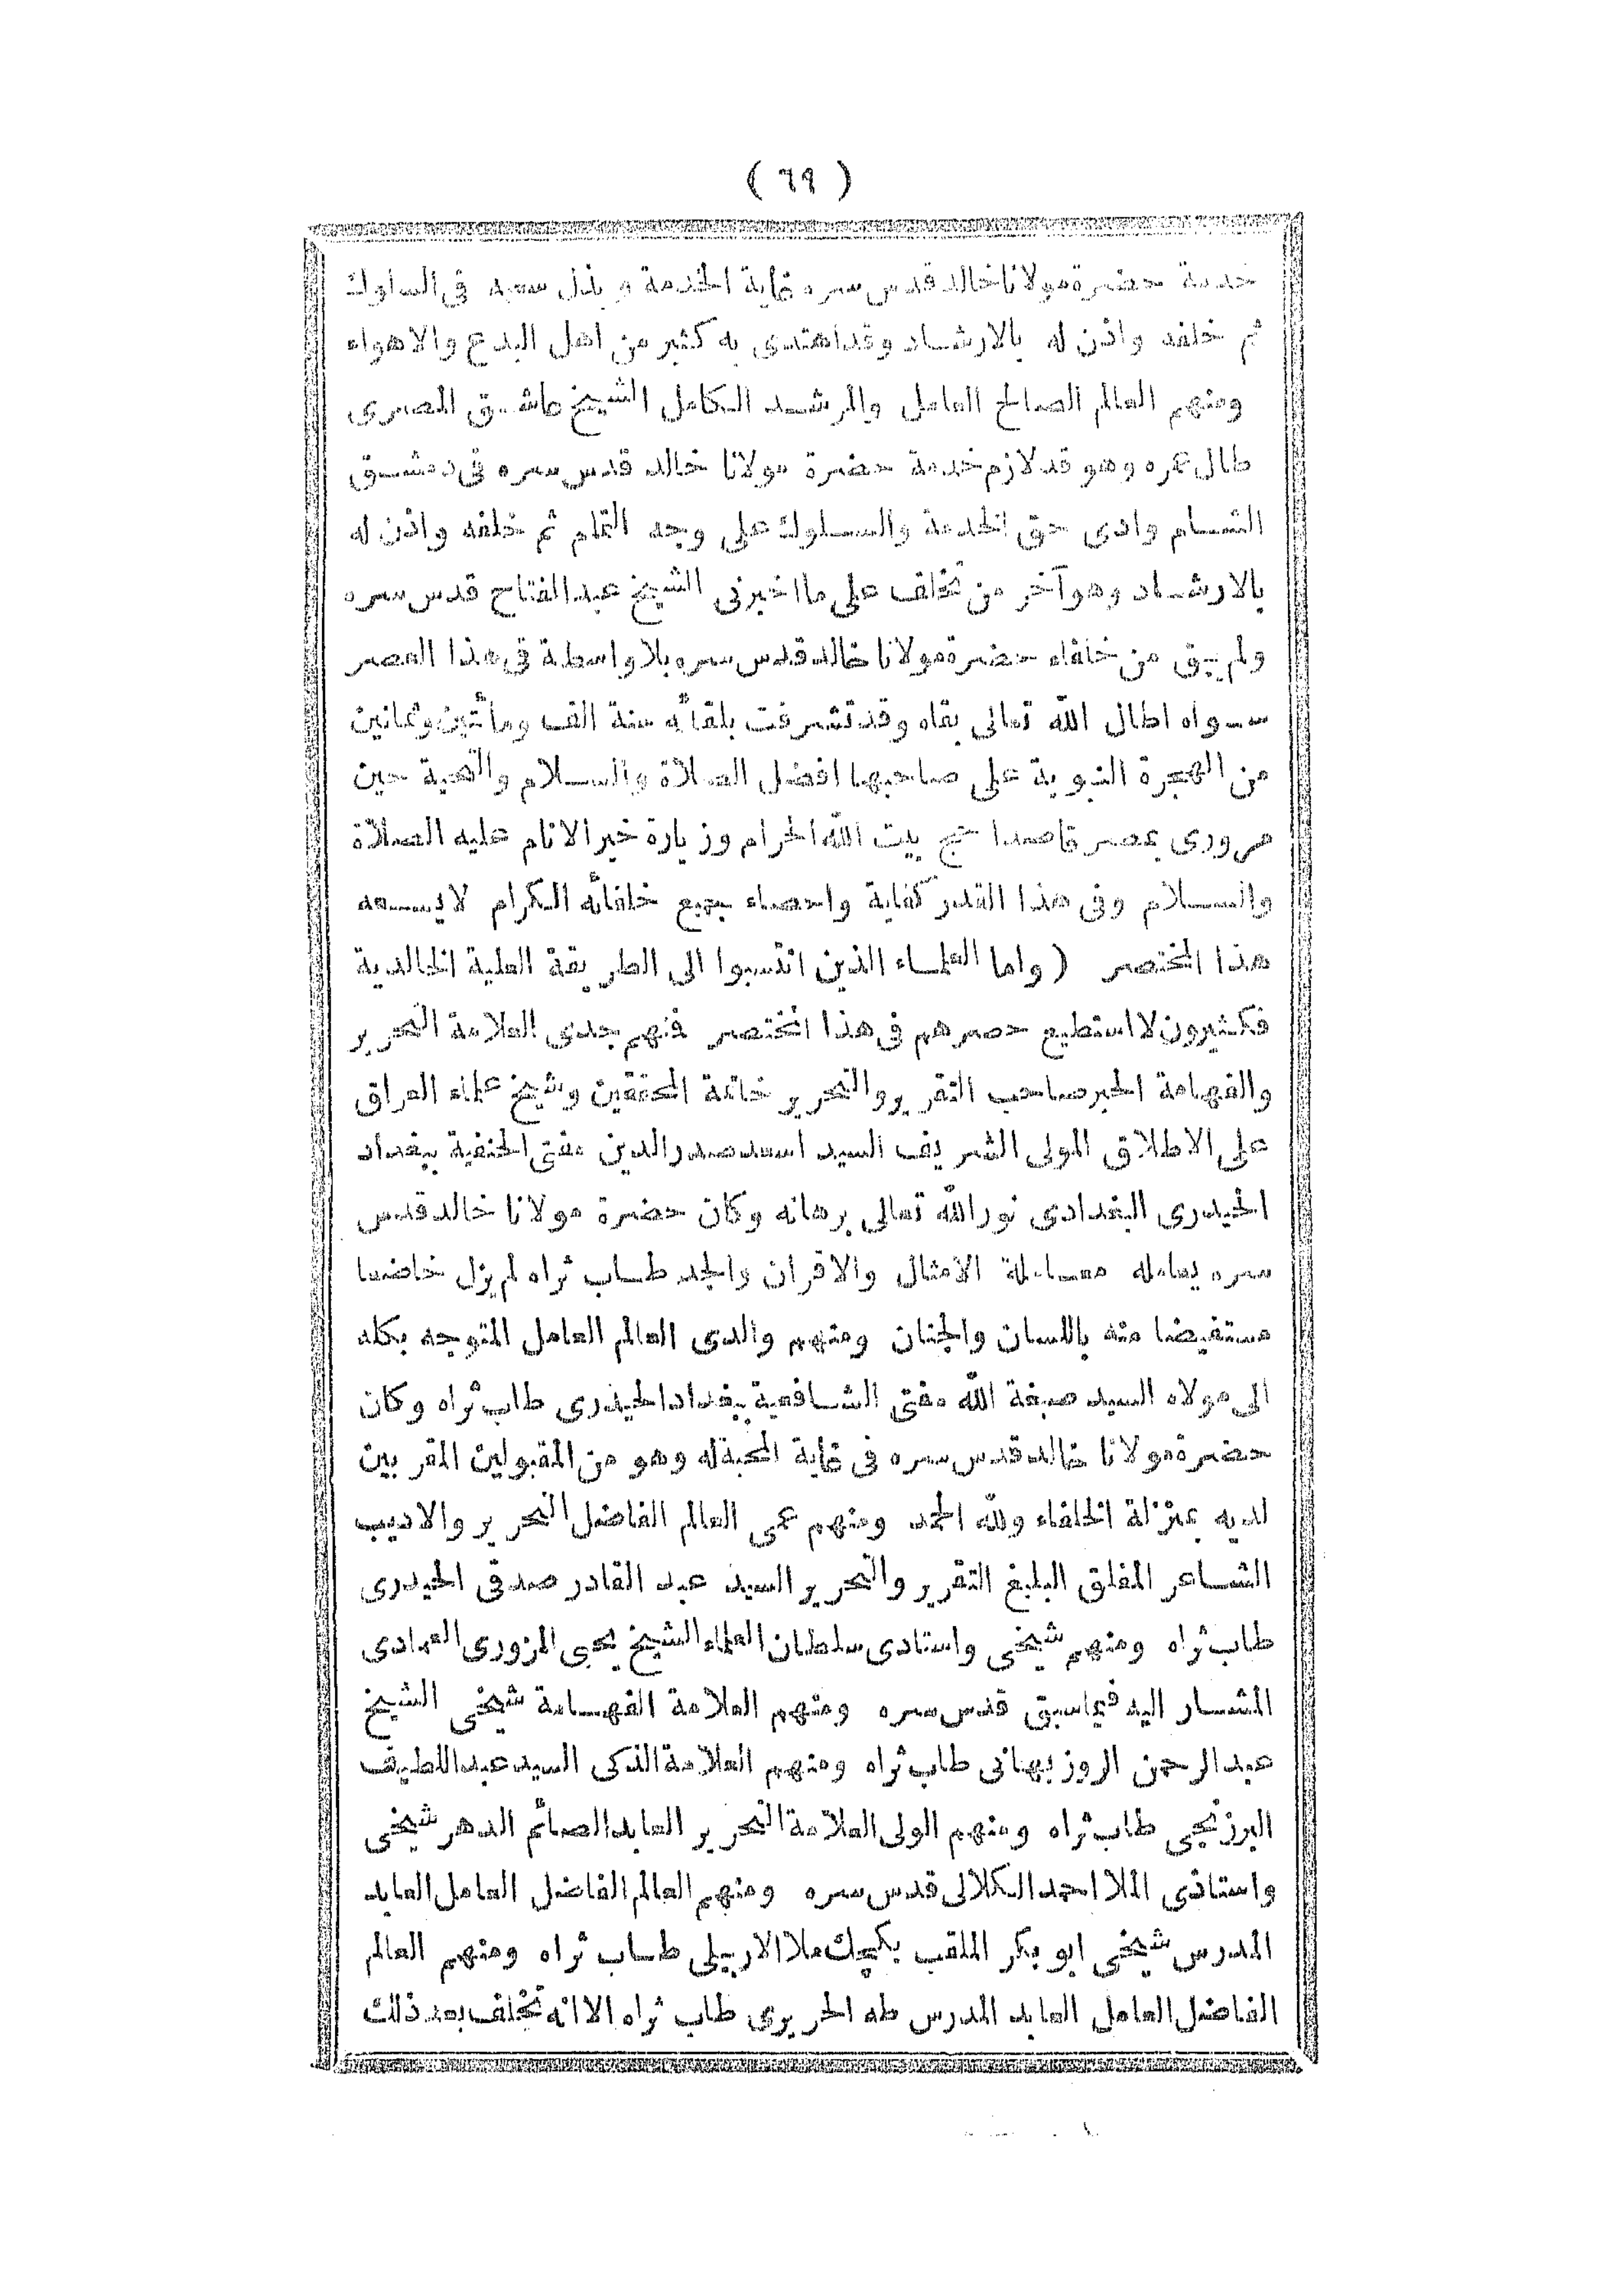 ( ٦٩ )
خدمة حضرة مولانا خالد قدس سره غاية الخدمة و بذل سعيه فى السلوك
ثم خلفه واذن له بالارشاد وقد اهتدى به كثير من اهل البدع والاهواء
ومنهم العالم الصالح العامل والمرشد الكامل الشيخ عاشق المصرى
طال عمره وهو قد لازم خدمة حضرة مولانا خالد قدس سره فى دمشق
الشام وادى حق الخدمة والسلوك على وجه التمام ثم خلفه واذن له
بالارشاد وهو آخر من تخلف على ما اخبرنى الشيخ عبد الفتاح قدس سره
ولم يبق من خلفاء حضرة مولانا خالد قدس سره بلا واسطة فى هذا العصر
سواه اطال الله تعالى بقاه وقد تشرفت بلقائه سنة الف ومأتين وثمانين
من الهجرة النبوية على صاحبها افضل الصلاة والسلام والتحية حين
مرورى بمصر قاصدا حج بيت الله الحرام وزيارة خير الانام عليه الصلاة
والسلام وفى هذا القدر كفاية واحصاء جميع خلفائه الكرام لا يسعه
هذا المختصر ( واما العلماء الذين انتسبوا الى الطريقة العلية الخالدية
فكثيرون لا استطيع حصرهم فى هذا المختصر فمنهم جدى العلامة النحرير
والفهامة الحبر صاحب التقرير والتحرير خاتمة المحققين وشيخ علماء العراق
على الاطلاق المولى الشريف السيد اسعد صدر الدين مفتى الحنفية ببغداد
الحيدرى البغدادى نور الله تعالى برهانه وكان حضرة مولانا خالد قدس
سره يعامله معاملة الامثال والاقران والجد طاب ثراه لم يزل خاضعا
مستفيضا منه باللسان والجنان ومنهم والدى العالم العامل المتوجه بكله
الى مولاه السيد صبغة الله مفتى الشافعية ببغداد الحيدرى طاب ثراه وكان
حضرة مولانا خالد قدس سره فى غاية المحبة له وهو من المقبولين المقربين
لديه بمنزلة الخلفاء ولله الحمد ومنهم عمى العالم الفاضل النحرير والاديب
الشاعر المفلق البليغ التقرير والتحرير السيد عبد القادر صدقى الحيدرى
طاب ثراه ومنهم شيخى واستادى سلطان العلماء الشيخ يحيى المزورى العمادى
المشار اليه فيما سبق قدس سره ومنهم العلامة الفهامة شيخى الشيخ
عبد الرحمن الروزبهانى طاب ثراه ومنهم العلامة الذكى السيد عبد اللطيف
البرزنجى طاب ثراه ومنهم الولى العلامة النحرير العابد الصائم الدهر شيخى
واستاذى الملا احمد الكلالى قدس سره ومنهم العالم الفاضل العامل العابد
المدرس شيخى ابو بكر الملقب بكچك ملا الاربيلى طاب ثراه ومنهم العالم
الفاضل العامل العابد المدرس طه الحريرى طاب ثراه الا انه تخلف بعد ذلك